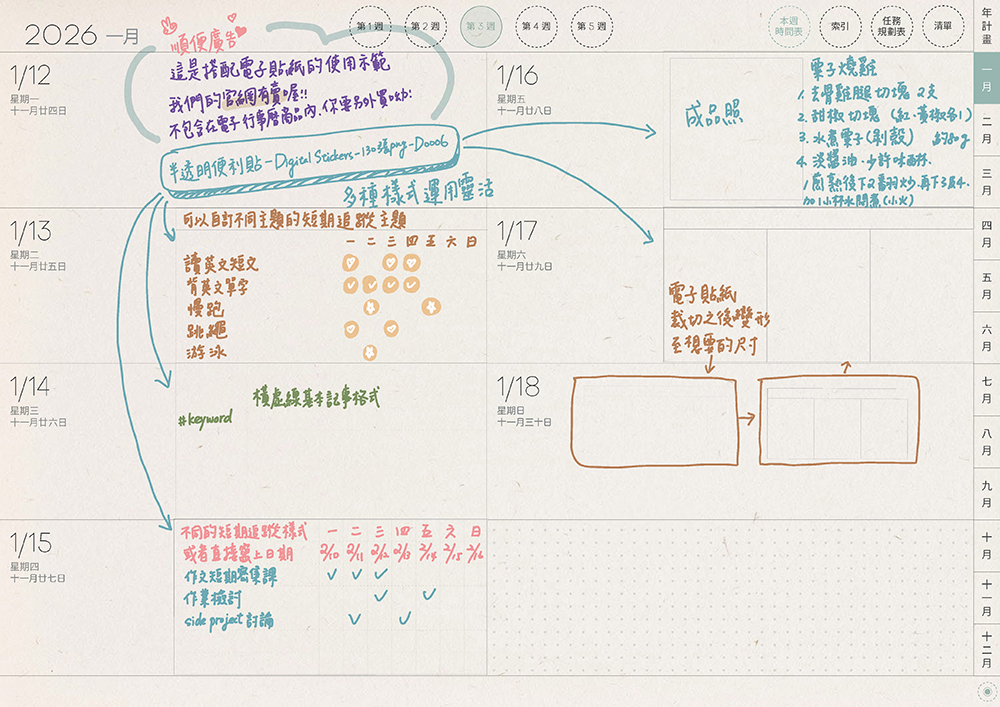 2026 一月
第1週
第2週
第3週
第4週
第5週
本週
時間表
索引
任務
規劃表
清單
年計畫
一月
二月
三月
四月
五月
六月
七月
八月
九月
十月
十一月
十二月
順便廣告
這是搭配電子貼紙的使用示範
我們的官網有賣喔!!
不包含在電子行事曆商品內,你要另外買呦!
半透明便利貼-Digital Stickers-130張png-D0006
多種樣式運用靈活
1/12
星期一
十一月廿四日
1/13
星期二
十一月廿五日
可以自訂不同主題的短期追蹤主題
一 二 三 四 五 六 日
讀英文短文
背英文單字
慢跑
跳繩
游泳
1/14
星期三
十一月廿六日
橫虛線基本記事格式
#keyword
1/15
星期四
十一月廿七日
不同的短期追蹤樣式 一 二 三 四 五 六 日
或者直接寫上日期 2/10 2/11 2/12 2/13 2/14 2/15 2/16
作文短期密集課
作業檢討
side project 討論
1/16
星期五
十一月廿八日
成品照
栗子燒雞
1. 去骨雞腿切塊 2支
2. 甜椒切塊 (紅·黃椒各1)
3. 水煮栗子(剝殼) 約80g
4. 淡醬油·少許味醂.
1煎熟後下2翻炒.再下3及4.
加1小杯水悶煮(小火)
1/17
星期六
十一月廿九日
電子貼紙
裁切之後變形
至想要的尺寸
1/18
星期日
十一月三十日